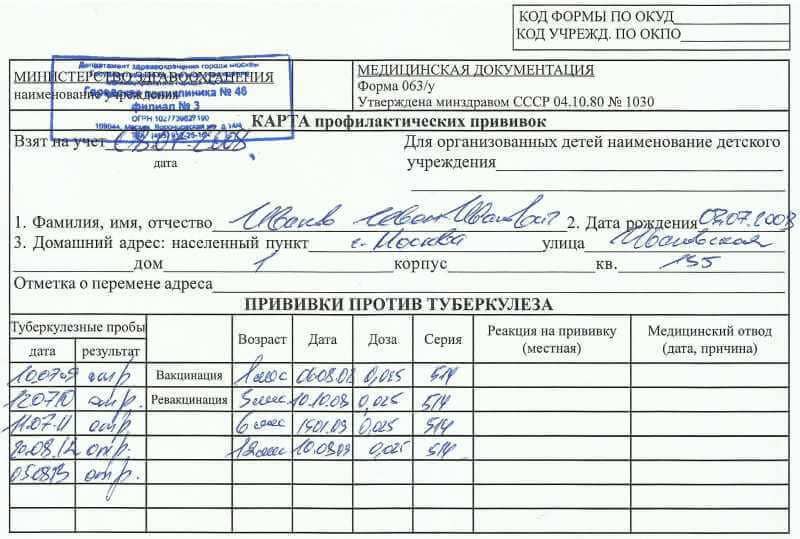 КОД ФОРМЫ ПО ОКУД
КОД УЧРЕЖД. ПО ОКПО
Департамент здравоохранения города Москвы
МИНИСТЕРСТВО ЗДРАВООХРАНЕНИЯ
наименование учреждения
Городская поликлиника № 46
филиал № 3
ОГРН 1027739827190
МЕДИЦИНСКАЯ ДОКУМЕНТАЦИЯ
Форма 063/у
Утверждена минздравом СССР 04.10.80 № 1030
КАРТА профилактических прививок
Взят на учет
дата
Для организованных детей наименование детского
учреждения
1. Фамилия, имя, отчество Иванов Иван Иванович 2. Дата рождения 03.07.2008
3. Домашний адрес: населенный пункт г. Москва улица Ивановская
дом 1 корпус кв. 155
Отметка о перемене адреса
ПРИВИВКИ ПРОТИВ ТУБЕРКУЛЕЗА
Туберкулезные пробы Возраст Дата Доза Серия Реакция на прививку (местная) Медицинский отвод (дата, причина)
дата результат
10.07.09 отр. Вакцинация 1 мес 06.08.08 0,025 514
12.07.10 отр. Ревакцинация 3 мес 10.10.08 0,025 514
11.07.11 отр. 6 мес 15.01.09 0,025 514
20.08.12 отр. 12 мес 10.08.09 0,025 514
05.08.13 отр.